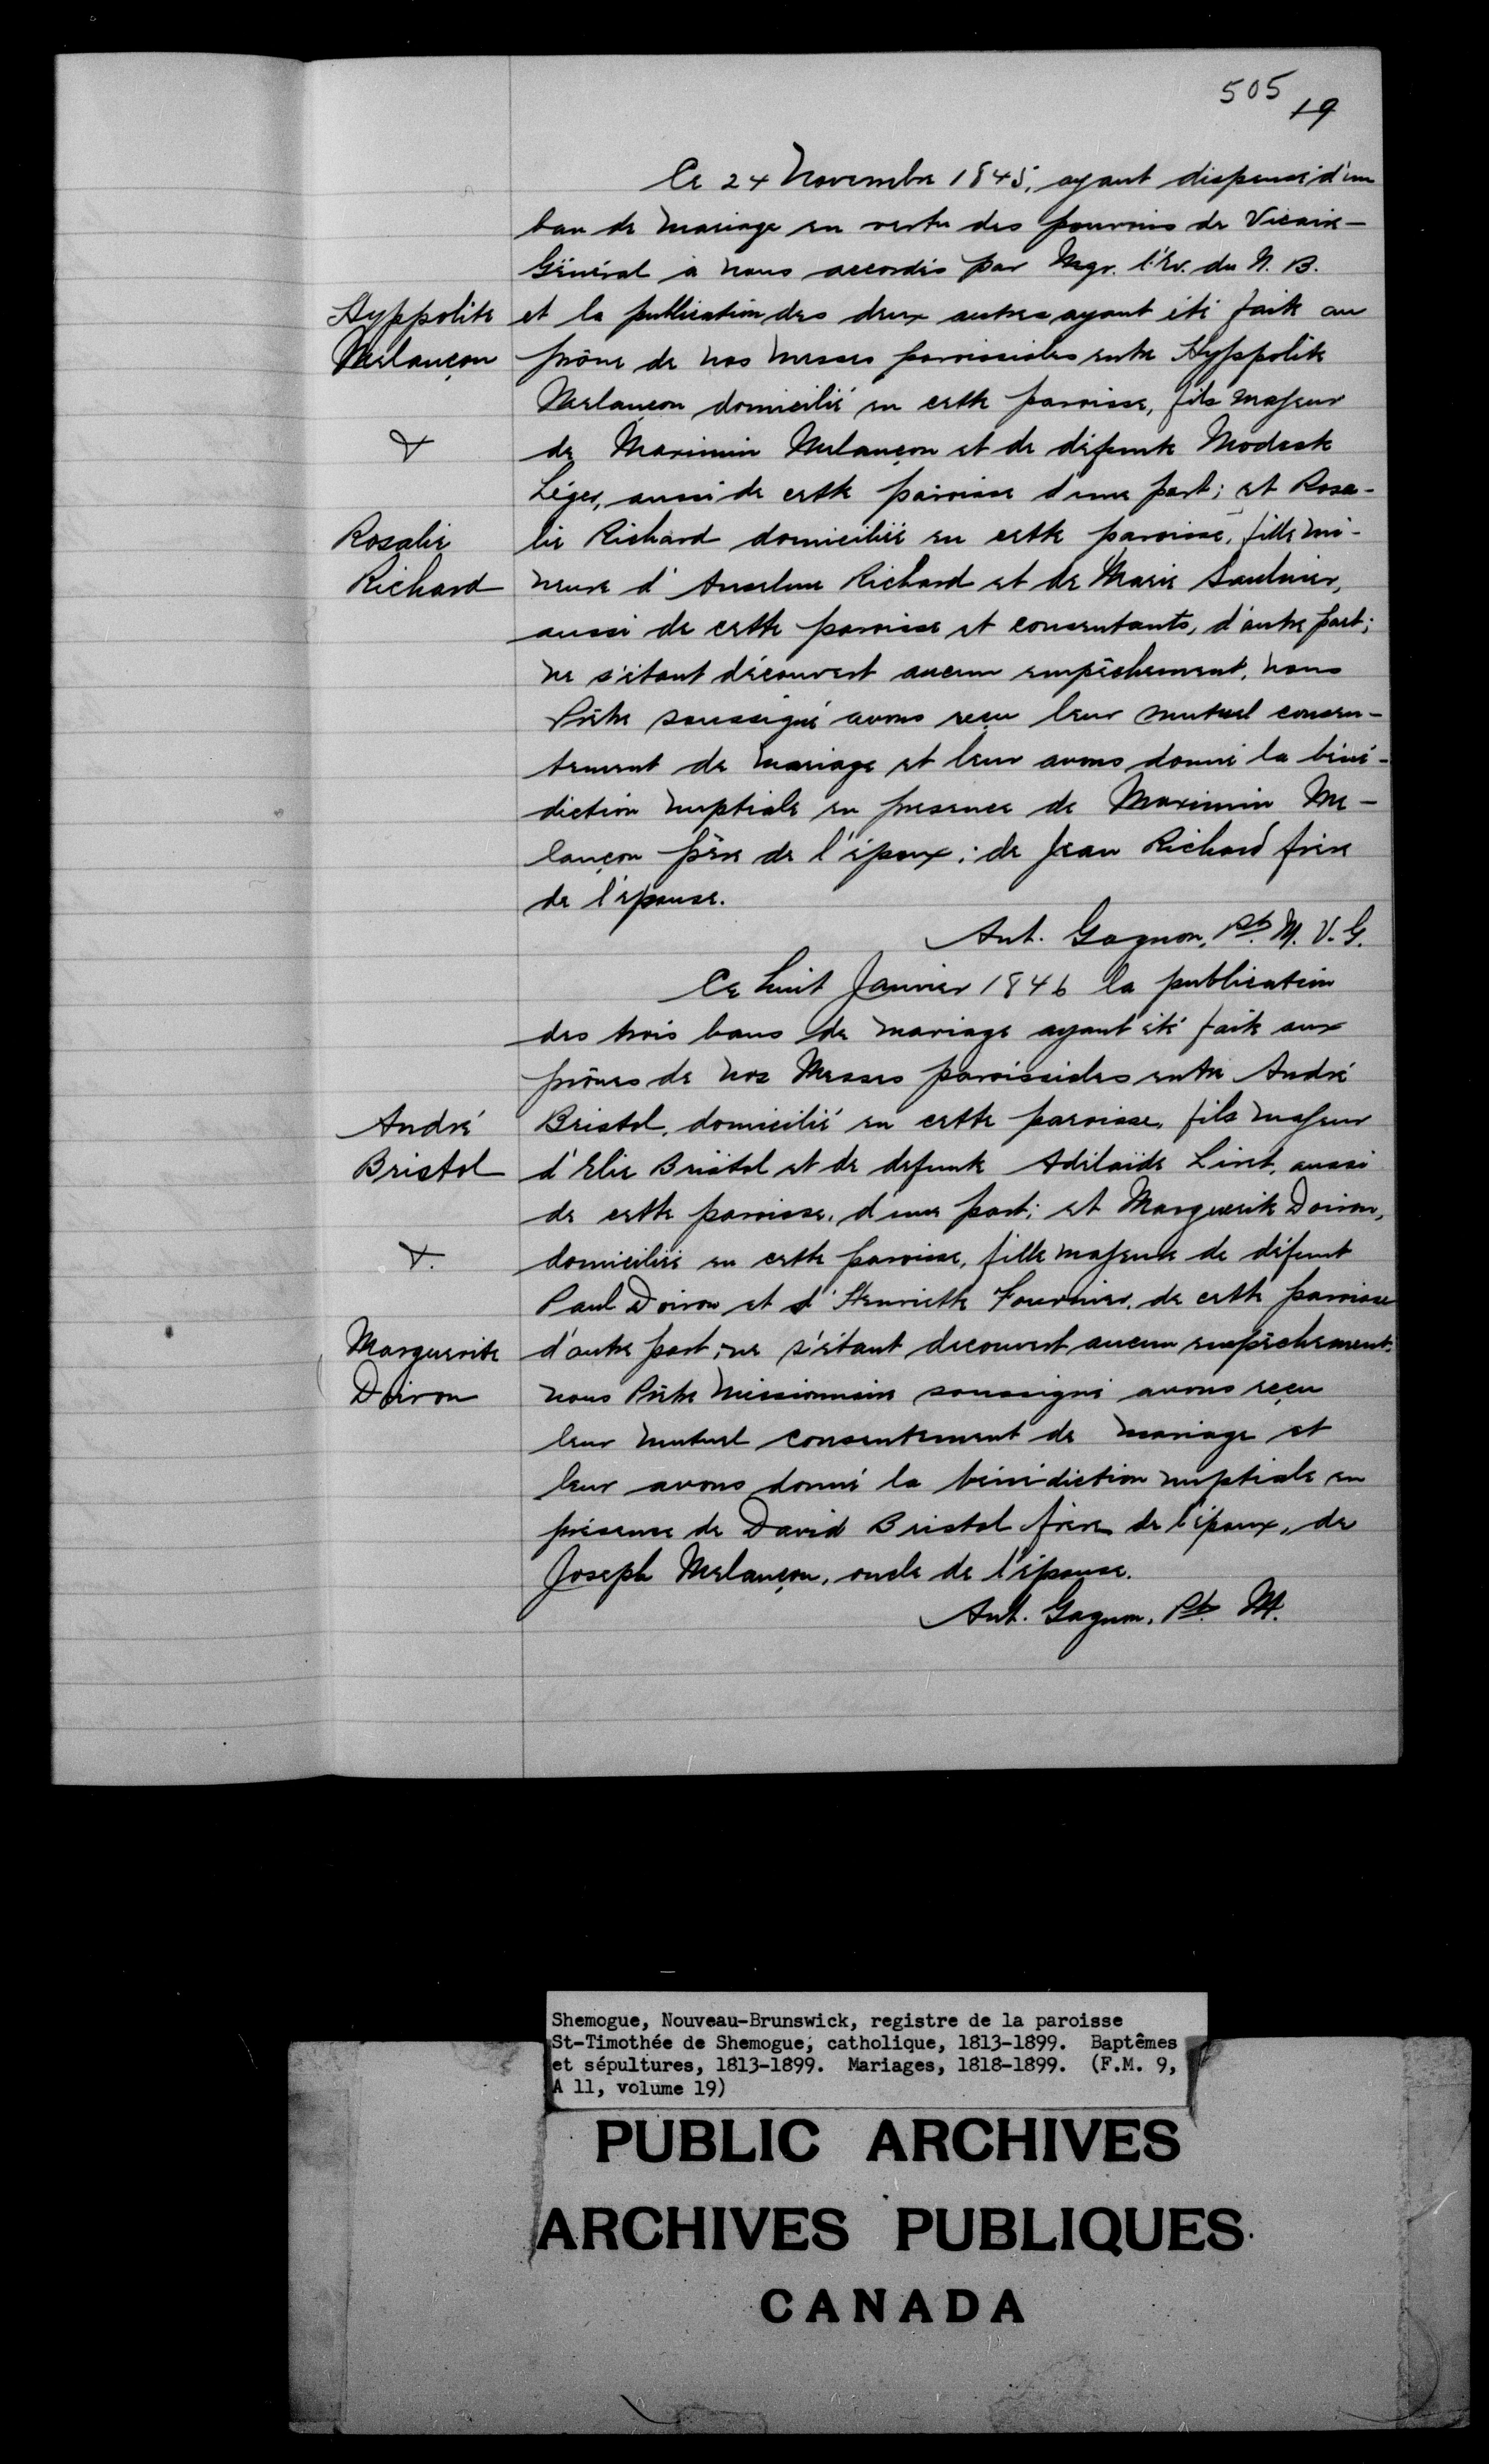 505
19
Ce 24 Novembre 1845, ayant dispensé d'un
ban de mariage en vertu des pouvoirs de Vicaire-
Général à nous accordés par Mgr. l'Ev. du N. B.
Hyppolite et la publication des deux autres ayant été faite au
Melançon prône de nos messes paroissiales entre Hyppolite
Melançon domicilié en cette paroisse, fils majeur
& de Maximin Melançon et de défunte Modeste
Léger, aussi de cette paroisse d'une part; et Rosa-
Rosalie lie Richard domiciliée en cette paroisse, fille mi-
Richard neure d'Anselme Richard et de Marie Saulnier,
aussi de cette paroisse et consentants, d'autre part;
ne s'étant découvert aucun empêchement, nous
Prêtre soussigné avons reçu leur mutuel consen-
tement de mariage et leur avons donné la béné-
diction nuptiale en presence de Maximin Me-
lançon père de l'époux; de Jean Richard frère
de l'épouse.
Ant. Gagnon, Pt. M. V. G.
Ce huit Janvier 1846 la publication
des trois bans de mariage ayant été faite aux
prônes de nos Messes paroissiales entre André
André Bristol, domicilié en cette paroisse, fils majeur
Bristol d'Elie Bristol et de defunte Adélaïde Liret, aussi
de cette paroisse, d'une part; et Marguerite Doiron,
&. domiciliée en cette paroisse, fille majeure de défunt
Paul Doiron et d'Henriette Fournier, de cette paroisse
Marguerite d'autre part; ne s'étant decouvert aucun empêchement,
Doiron nous Prêtre Missionnaire soussigné avons reçu
leur mutuel consentement de mariage et
leur avons donné la bénédiction nuptiale en
présence de David Bristol frère de l'époux, de
Joseph Melançon, oncle de l'épouse.
Ant. Gagnon, Pt. M.
Shemogue, Nouveau-Brunswick, registre de la paroisse
St-Timothée de Shemogue, catholique, 1813-1899. Baptêmes
et sépultures, 1813-1899. Mariages, 1818-1899. (F.M. 9,
A 11, volume 19)
PUBLIC ARCHIVES
ARCHIVES PUBLIQUES
CANADA